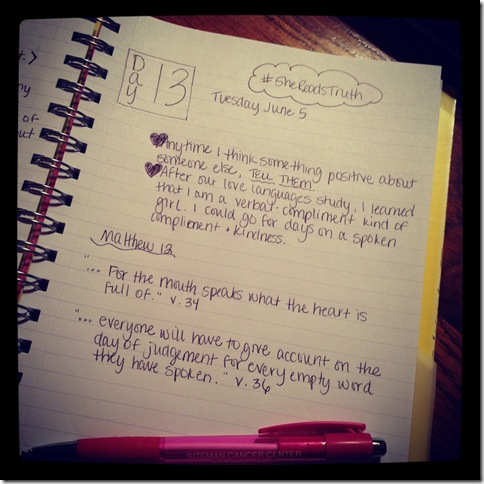 t.)
ny
of
out
Day 13
#SheReadsTruth
Tuesday June 5
Anytime I think something positive about
someone else, TELL THEM
After our love languages study, I learned
that I am a verbal-compliment kind of
girl. I could go for days on a spoken
compliement + kindness.
Matthew 12
"... For the mouth speaks what the heart is
full of." v. 34
"... everyone will have to give account on the
day of judgement for every empty word
they have spoken." v. 36
SITEMAN CANCER CENTER